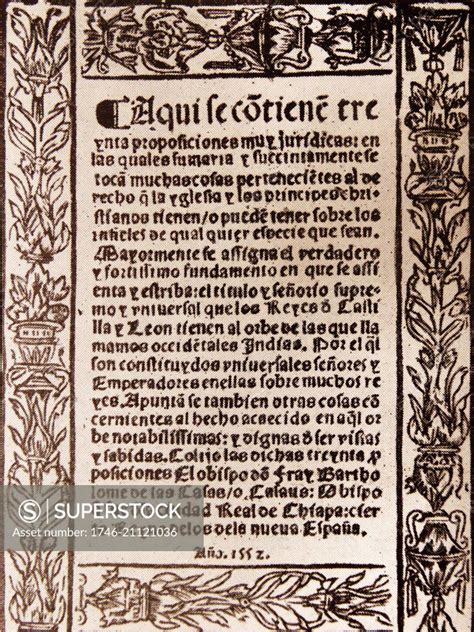 Aqui se cõtienẽ tre
ynta proposiciones muy juridicas: en
las quales sumaria y succintamente se
tocã muchas cosas perteneciẽtes al de
recho q̃ la yglesia y los principes chri
stianos tienen/o puedẽ tener sobre los
infieles de qual quier especie que sean.
Mayormente se assigna el verdadero
y fortissimo fundamento en que se assi
enta y estriba: el titulo y señorio supre
mo y vniuersal que los Reyes d̃ Casti
lla y Leon tienen al orbe de las que lla
mamos occidẽtales Indias. Por el q̃l
son constituydos vniuersales señores y
Emperadores enellas sobre muchos re
yes. Apuntã se tambien otras cosas cõ
cernientes al hecho acaecido en aq̃l or
be notabilissimas: y dignas d̃ ser vistas
y sabidas. Colijo las dichas treynta p
posiciones El obispo dõ Fray Bartho
lome de las Casas/o Casaus: Obispo
dad Real de Chiapa: cier
uos dela nueua España.
Año. 1552.
SUPERSTOCK
Asset number: 1746-21121036